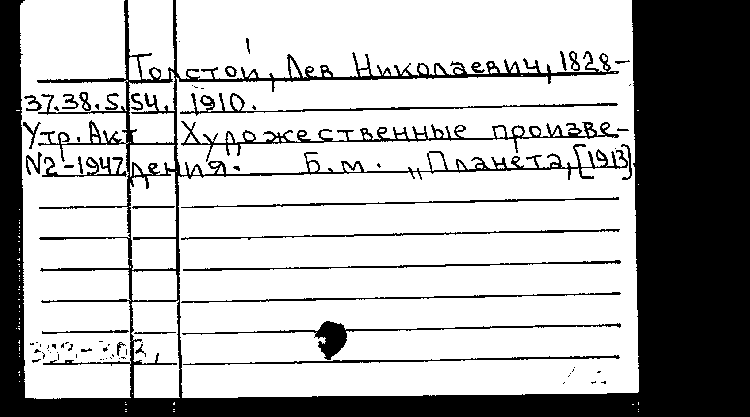 Толстой, Лев Николаевич, 1828-
37.38.5.54. 1910.
Утр. Акт Художественные произве-
N2-1947 дения. Б.м. "Планета, [1913].